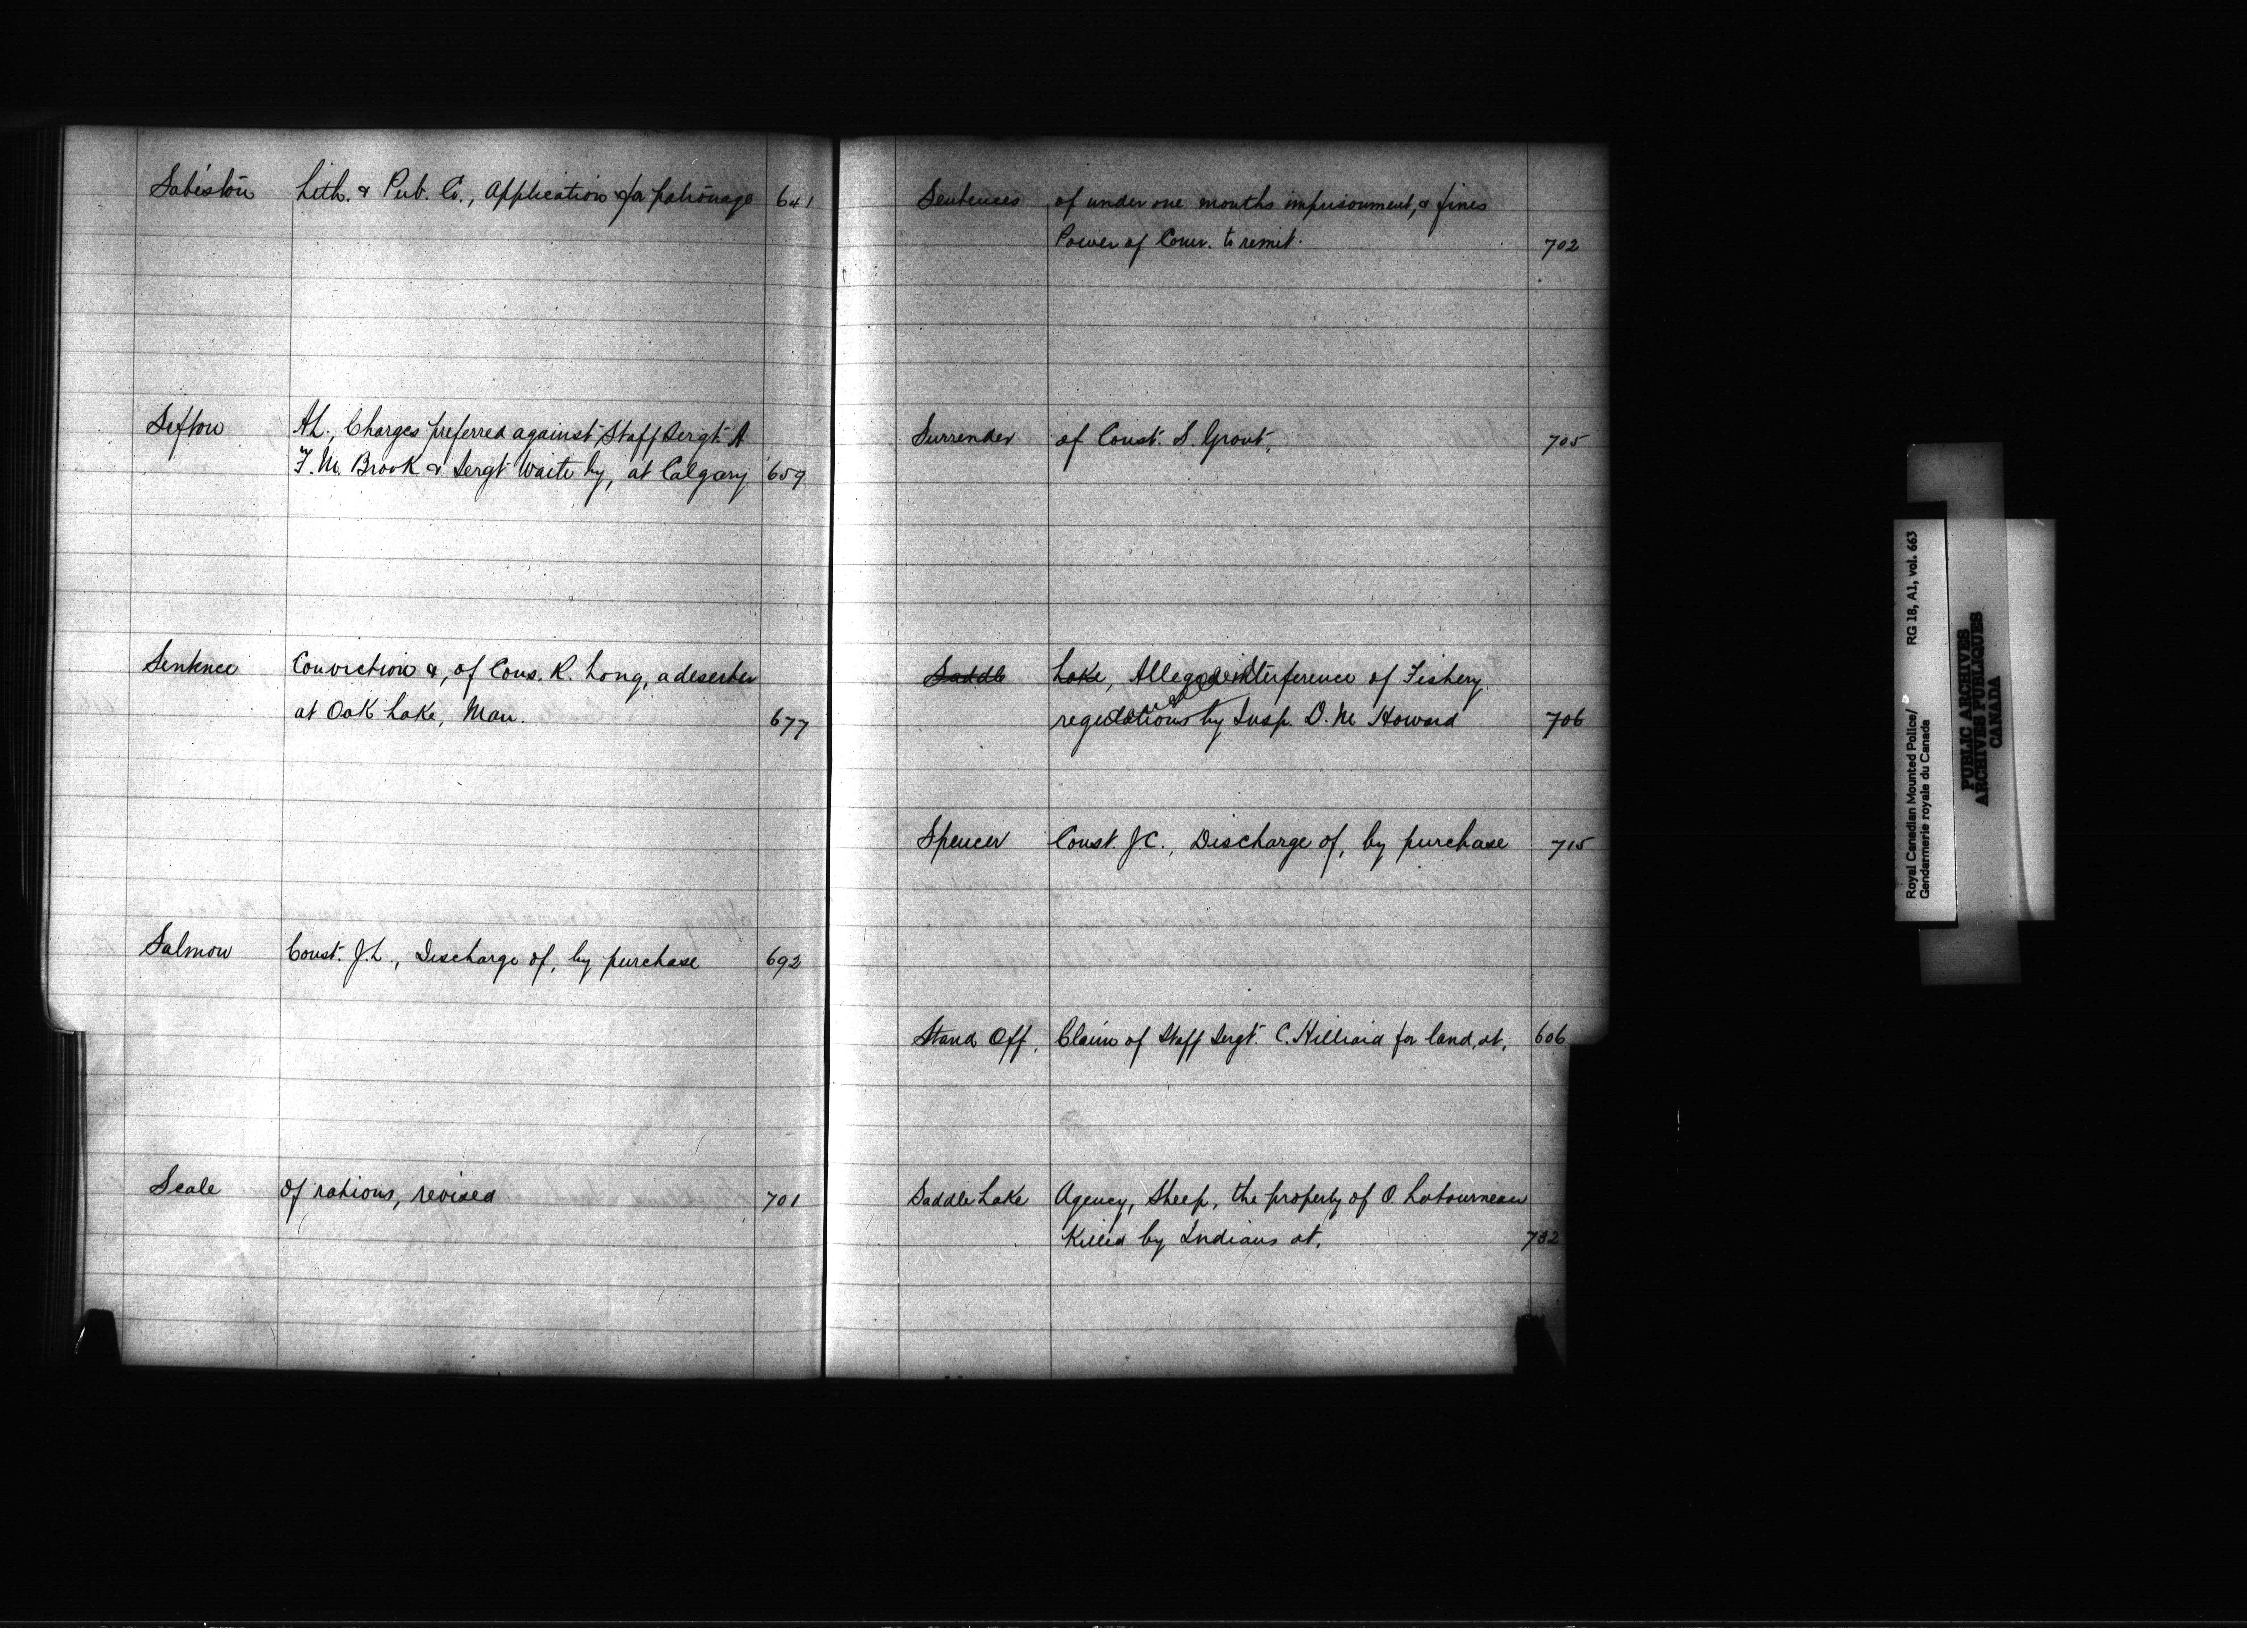 Sabiston Lith. & Pub. Co., Application for patronage 641
Sefton A.L., Charges preferred against Staff Sergt. A
F. M. Brook & Sergt Waite by, at Calgary 659
Sentence Conviction &, of Cons. R. Long, a deserter
at Oak Lake, Man. 677
Salmon Const. J.L., Discharge of, by purchase 692
Scale of rations, revised 701
Sentences of under one months imprisonment, & fines
Power of Comr. to remit. 702
Surrender of Const. S. Grout. 705
Saddle Lake, Alleged interference of Fishery
regulations by Insp. D. M Howard 706
Spencer Const. J.C., Discharge of, by purchase 715
Stand Off, Claim of Staff Sergt. C. Hilliard for land, at. 606
Saddle Lake Agency, Sheep, the property of O. Latourneau
Killed by Indians at. 732
Royal Canadian Mounted Police/ RG 18, A1, vol. 663
Gendarmerie royale du Canada
PUBLIC ARCHIVES
ARCHIVES PUBLIQUES
CANADA